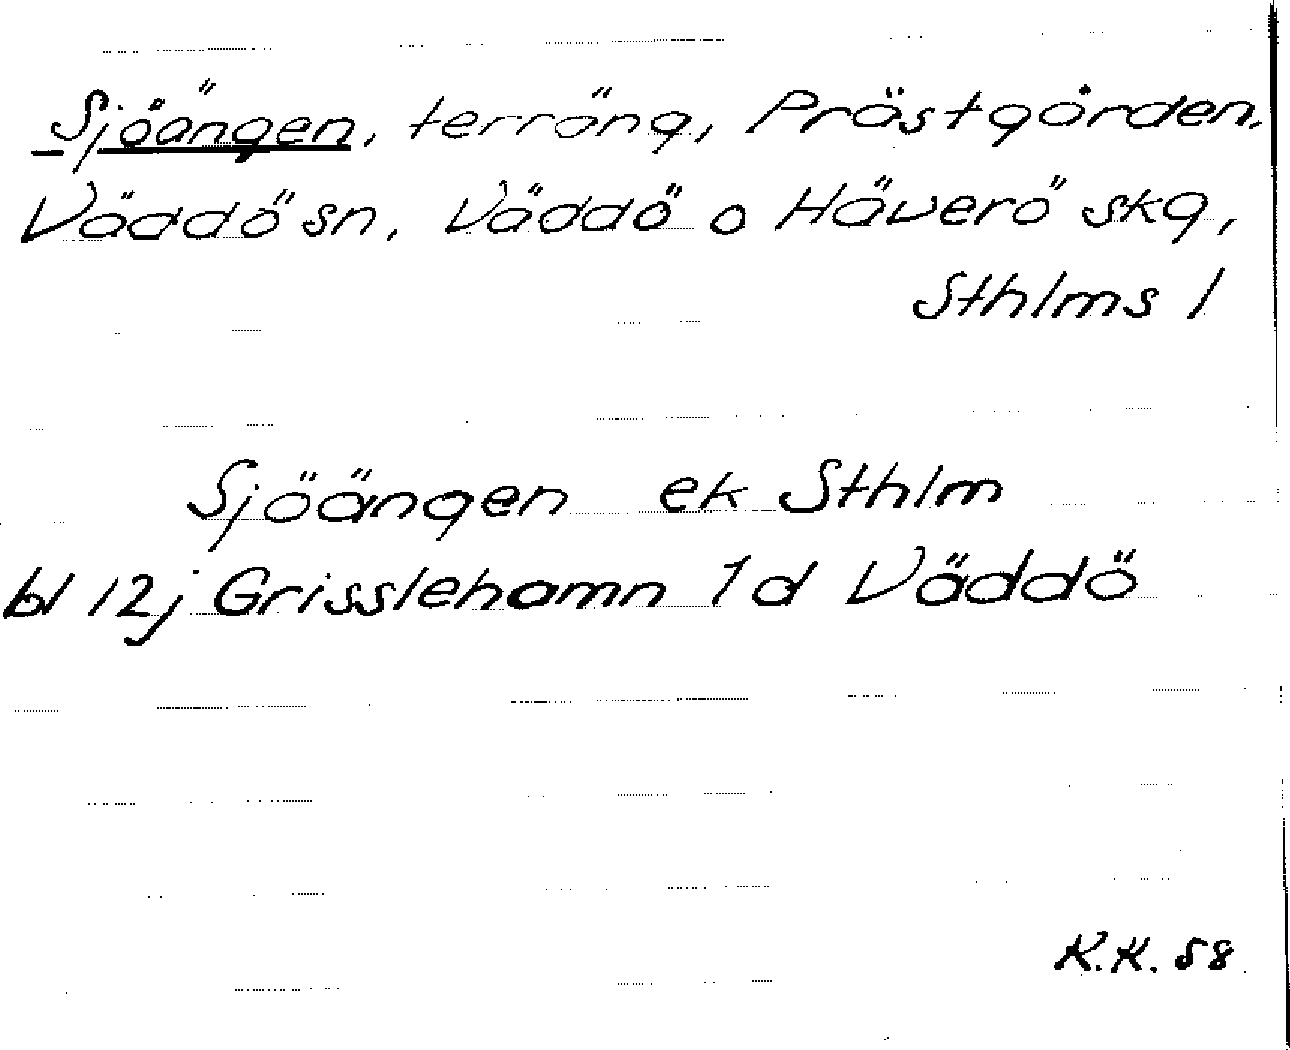 Sjöängen, terräng, Prästgården.
Väddö sn, Väddö o Häverö skg,
Sthlms l
Sjöängen ek Sthlm
bl 12j Grisslehamn 1d Väddö
K.K. 58